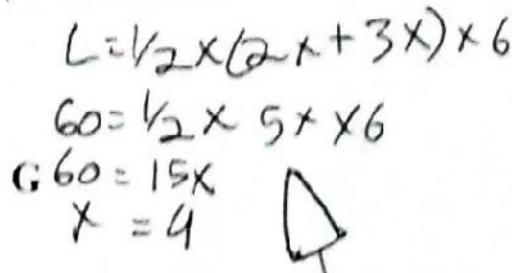 L = 1/2 x (2x + 3x) x 6
60 = 1/2 x 5x x 6
G 60 = 15x
x = 4